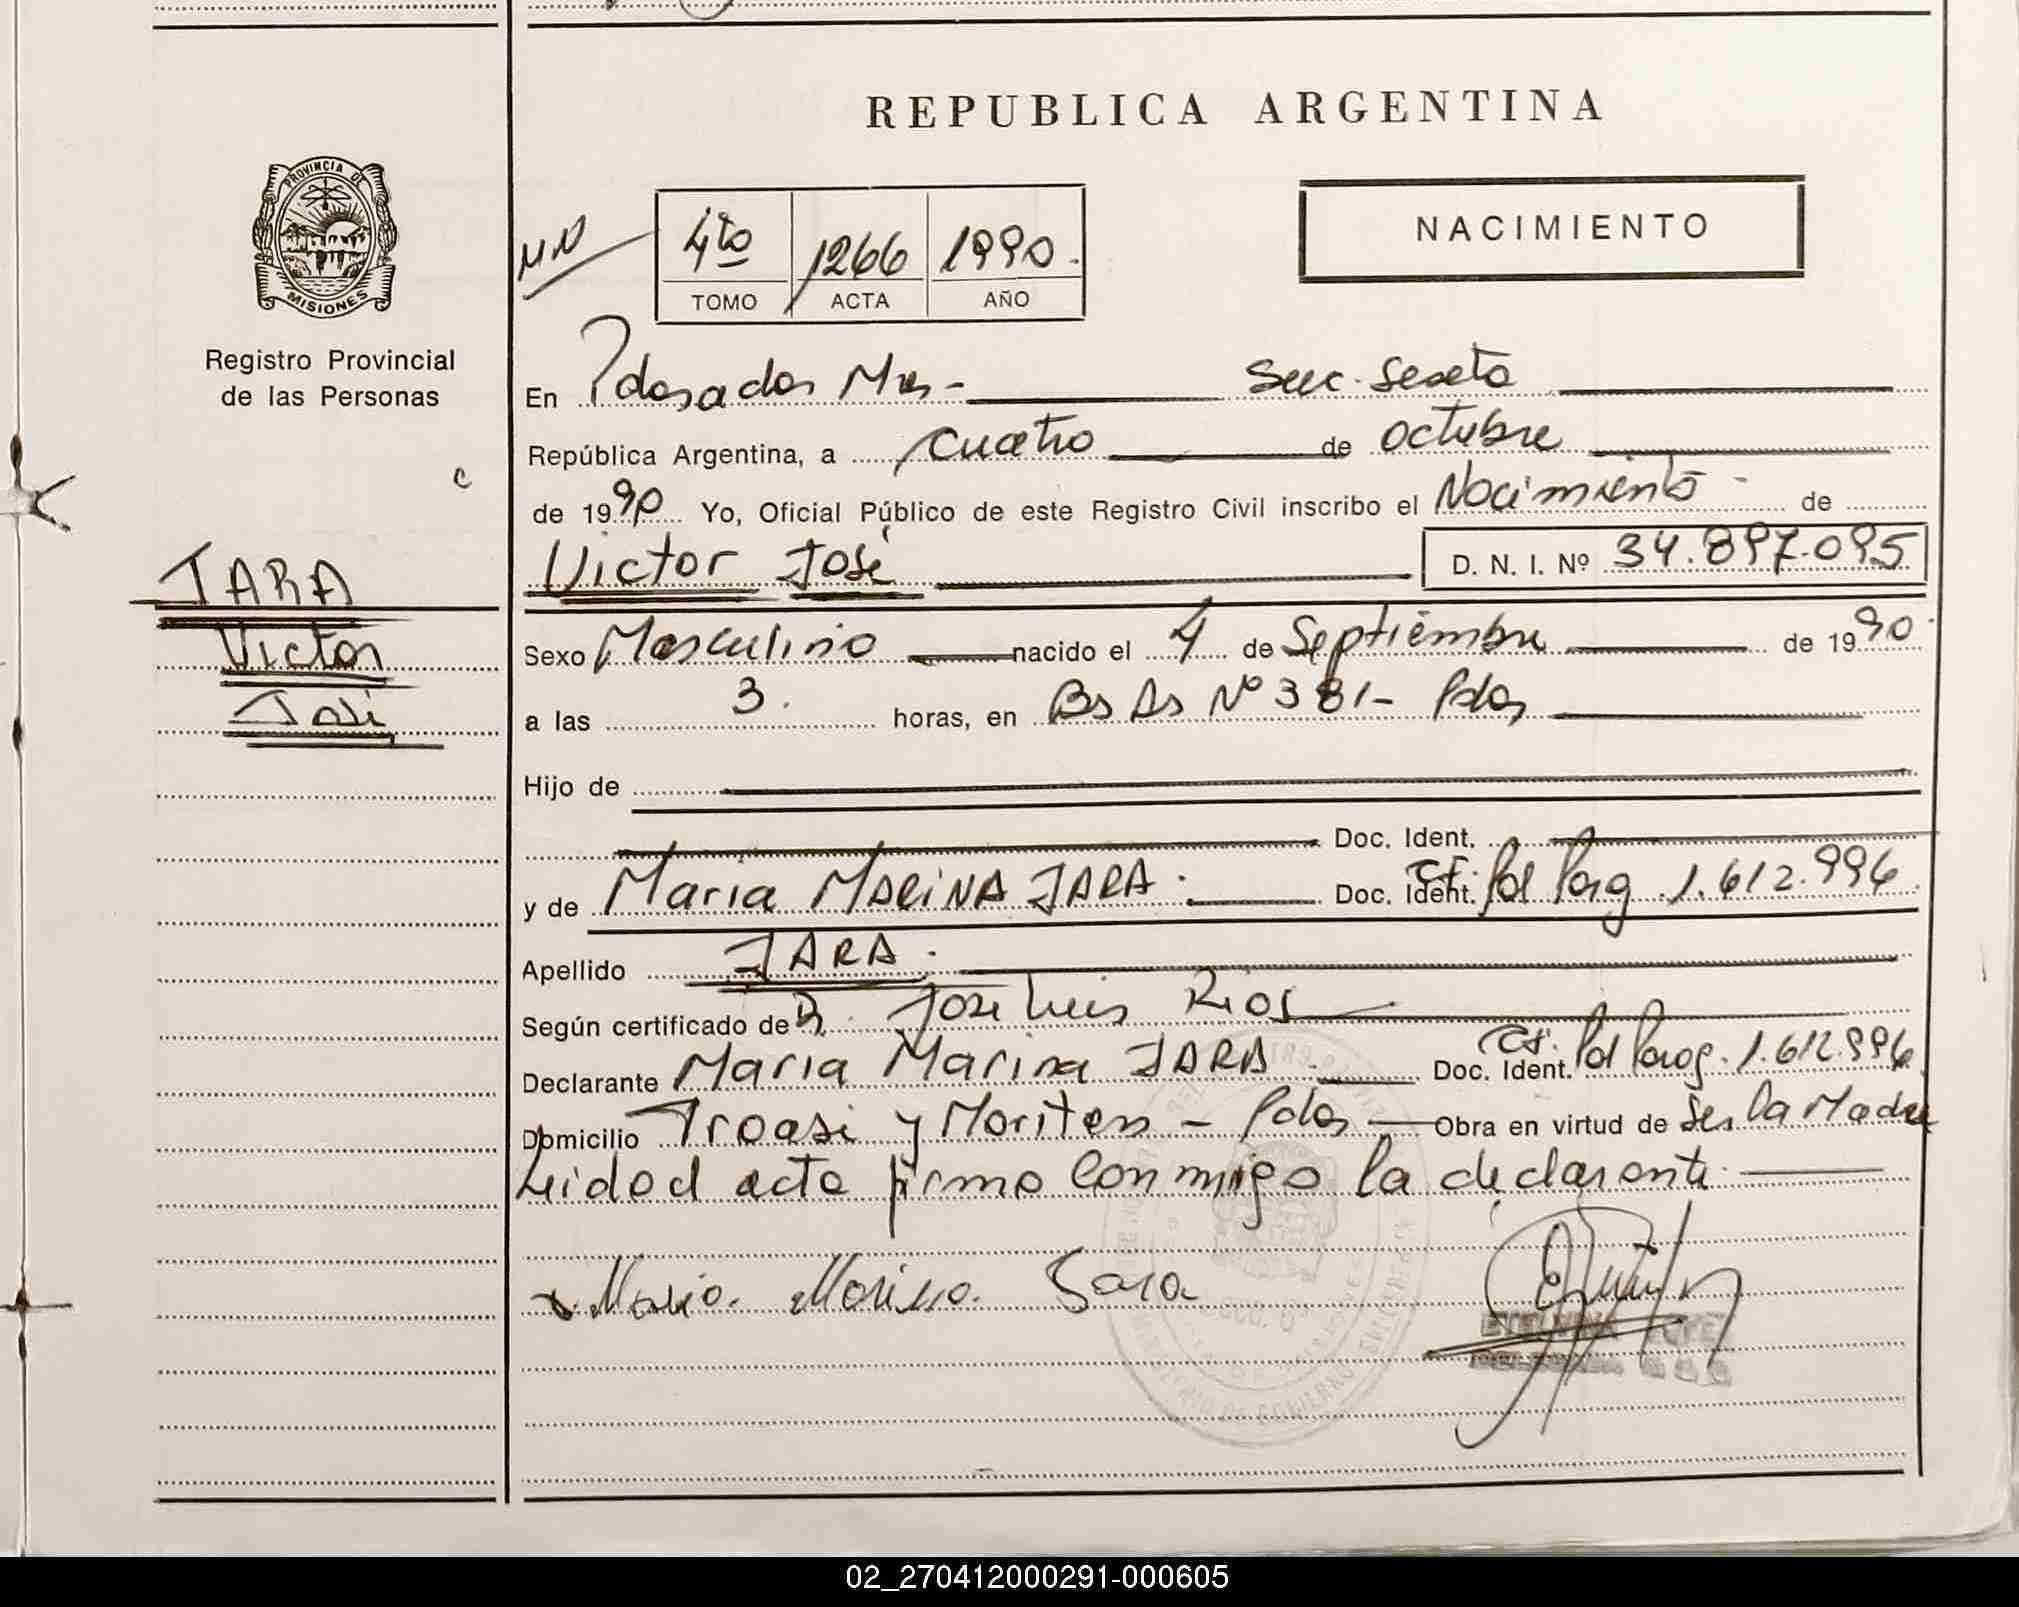 REPUBLICA ARGENTINA
PROVINCIA DE
MISIONES
Registro Provincial
de las Personas
NACIMIENTO
4to 1266 1990.
TOMO ACTA AÑO
En Posadas Mns- Secc. Sexta
República Argentina, a cuatro de octubre
de 1990 Yo, Oficial Público de este Registro Civil inscribo el Nacimiento - de
Victor José D. N. I. Nº 34.897.095
JARA
Victor
José
Sexo Masculino nacido el 4 de Septiembre de 1990.
a las 3. horas, en Bs As Nº 381- Pdas
Hijo de
Doc. Ident.
y de Maria MARINA JARA. Doc. Ident. CI. Pol Parag. 1.612.996.
Apellido JARA.
Según certificado de Dr. Jose Luis Rios
Declarante Maria Marina JARA. Doc. Ident. CI. Pol Parag. 1.612.996
Domicilio y - Pdas Obra en virtud de Ser la Madre
Leido el acta firma conmigo la declarante
Maria. Marina. Gara
02_270412000291-000605